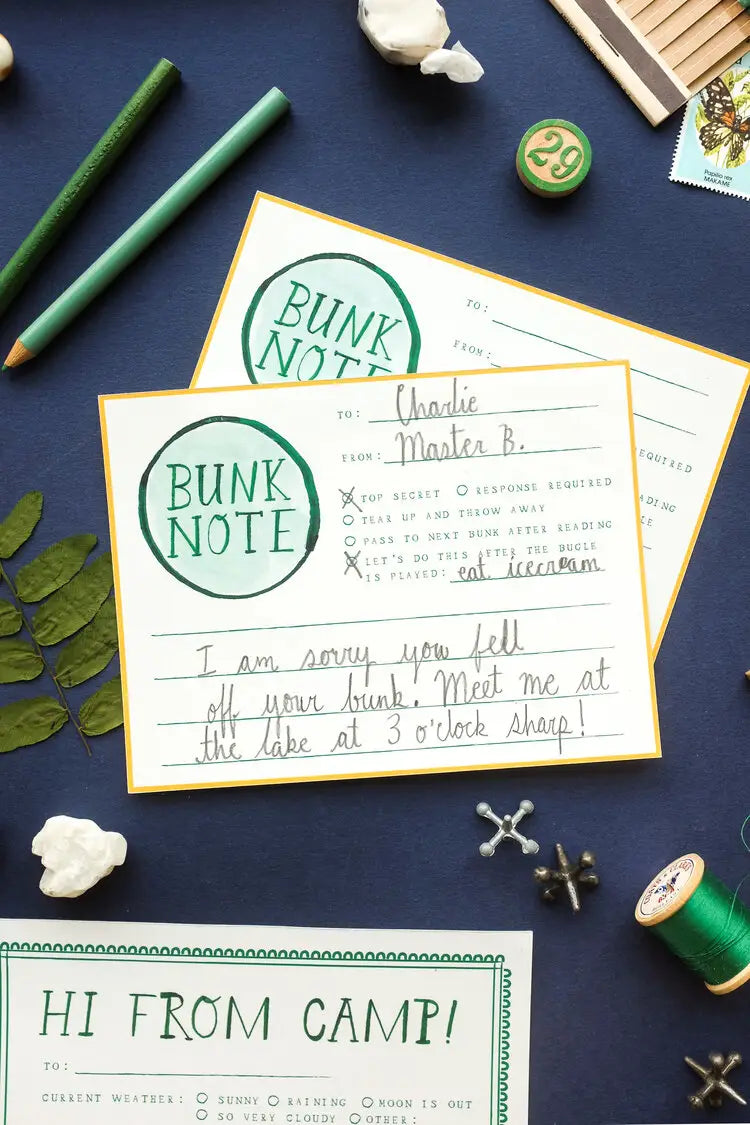 29
Papilio rex
MAKAME
BUNK
NOTE
TO:
FROM:
EQUIRED
ADING
LE
BUNK
NOTE
TO: Charlie
FROM: Master B.
TOP SECRET RESPONSE REQUIRED
TEAR UP AND THROW AWAY
PASS TO NEXT BUNK AFTER READING
LET'S DO THIS AFTER THE BUGLE
IS PLAYED: eat icecream
I am sorry you fell
off your bunk. Meet me at
the lake at 3 o'clock sharp!
HI FROM CAMP!
TO:
CURRENT WEATHER: SUNNY RAINING MOON IS OUT
SO VERY CLOUDY OTHER: